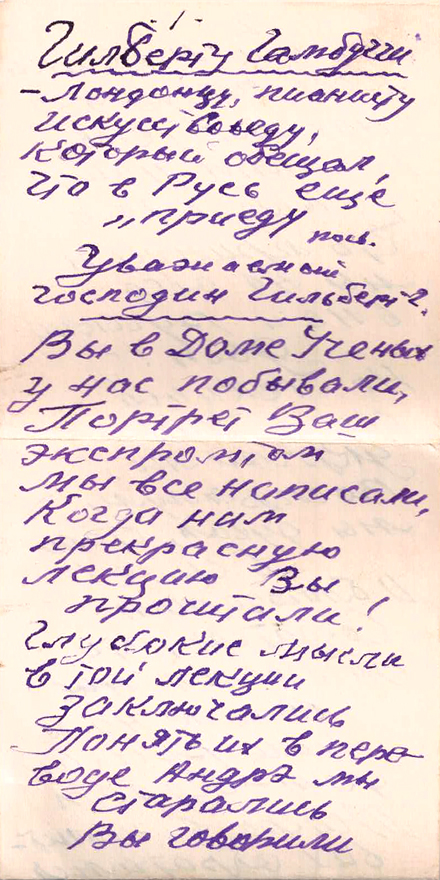 Гилберту Гамбуччи
- Лондонцу, пианисту
искусствоведу,
который обещал,
что в Русь еще
„приеду
Уважаемый
господин Гильберт Г.
Вы в Доме Ученых
у нас побывали,
Портрет Ваш
экспромтом
мы все написали,
Когда нам
прекрасную
лекцию Вы
прочитали!
Глубокие мысли
в той лекции
заключались
Понять их в пере-
воде Андрэ мы
старались
Вы говорили